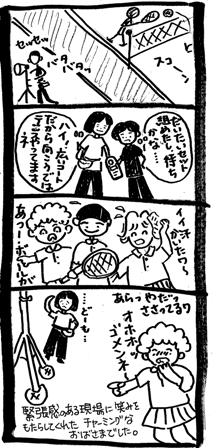 セッセッ
バタバタッ
スコーン
と
だいたいセット
組めたし、待ち
かな。
ハイ!広いコート
だから向こうでは
テニスやってます
ネ
イイ汗
かいたワ〜
あっ…ボールが
あらっやだっ
ささってるワ
オホホッ
ゴメンネー
……ど…も…
緊張感のある現場に笑みを
もたらしてくれた チャーミングな
おばさまでした。